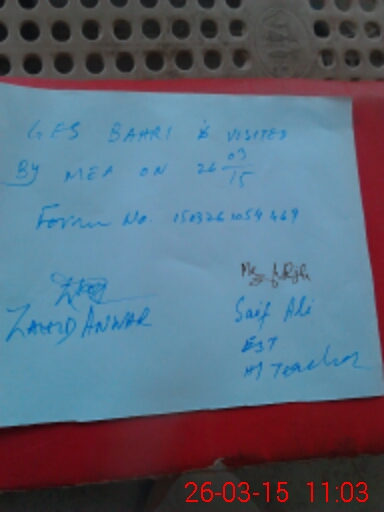 GES BAHRI is VISITED
BY MEA ON 26 03
15
Form No. 1503261059469
ZAHID ANWAR
Saif Ali
EST
H/Teacher
26-03-15 11:03